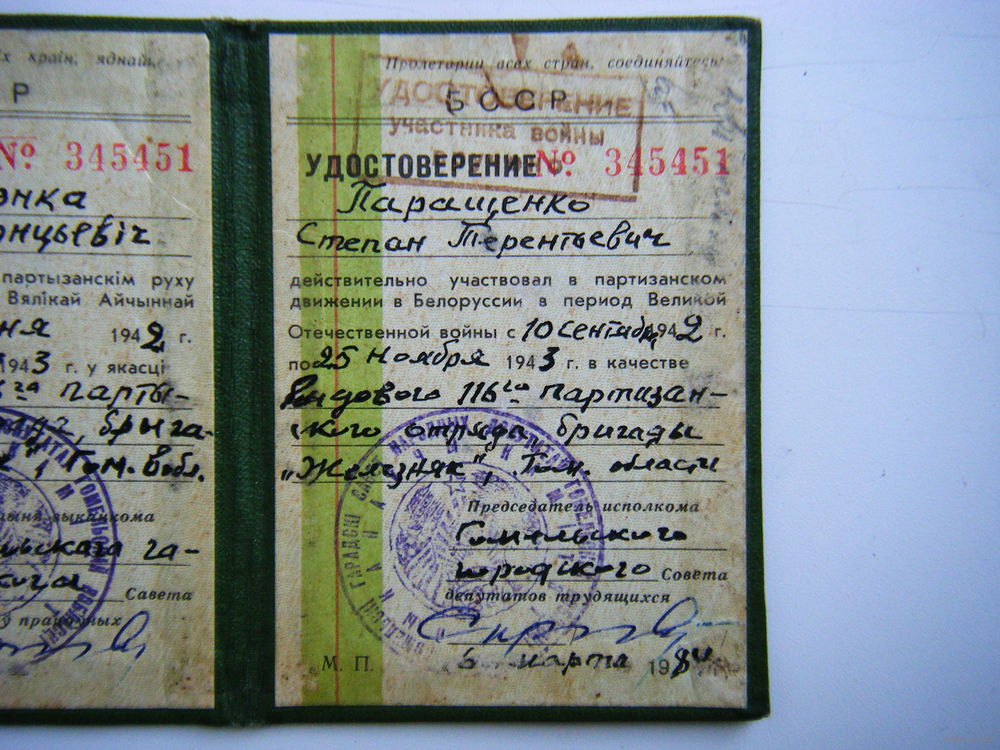 іх краін, яднай
Р
№ 345451
энка
энцьевіч
партызанскім руху
Вялікай Айчыннай
ня 1942 г.
1943 г. у якасці
га парты-
брыга-
Гом. вобл.
выканкома
га-
Савета
працоўных
Пролетарии всех стран, соединяйтесь!
БССР
УДОСТОВЕРЕНИЕ
участника войны
УДОСТОВЕРЕНИЕ № 345451
Паращенко
Степан Терентьевич
действительно участвовал в партизанском
движении в Белоруссии в период Великой
Отечественной войны с 10 сентября 1942 г.
по 25 ноября 1943 г. в качестве
рядового 116го партизан-
ского отряда, бригады
„Железняк", Гом. области
Председатель исполкома
Гомельского
городского Совета
депутатов трудящихся
М. П. 6 марта 19